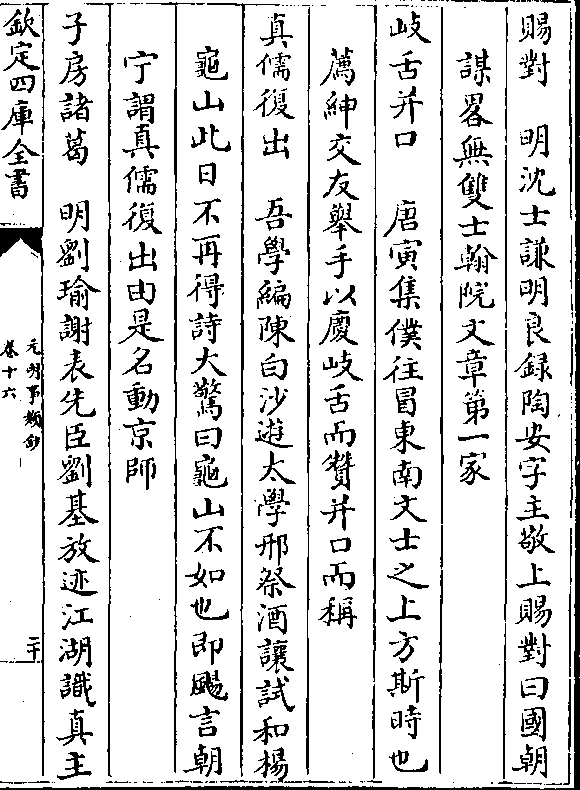 賜對　明沈士謙明良録陶安字主敬上賜對曰國朝
謀畧無雙士翰院文章第一家
岐舌并口　唐寅集僕往冒東南文士之上方斯時也
薦紳交友舉手以慶岐舌而贊并口而稱
真儒復出　吾學編陳白沙遊太學邢祭酒讓試和楊
龜山此日不再得詩大驚曰龜山不如也即颺言朝
宁謂真儒復出由是名動京師
子房諸葛　明劉瑜謝表先臣劉基放迹江湖識真主
欽定四庫全書
元明事類鈔
卷十六
二十